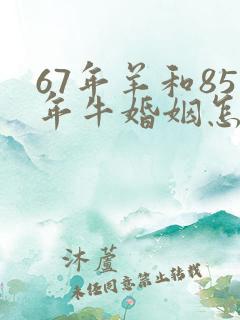 67年羊和85
年牛婚姻怎
沐蘆
未经同意禁止转载